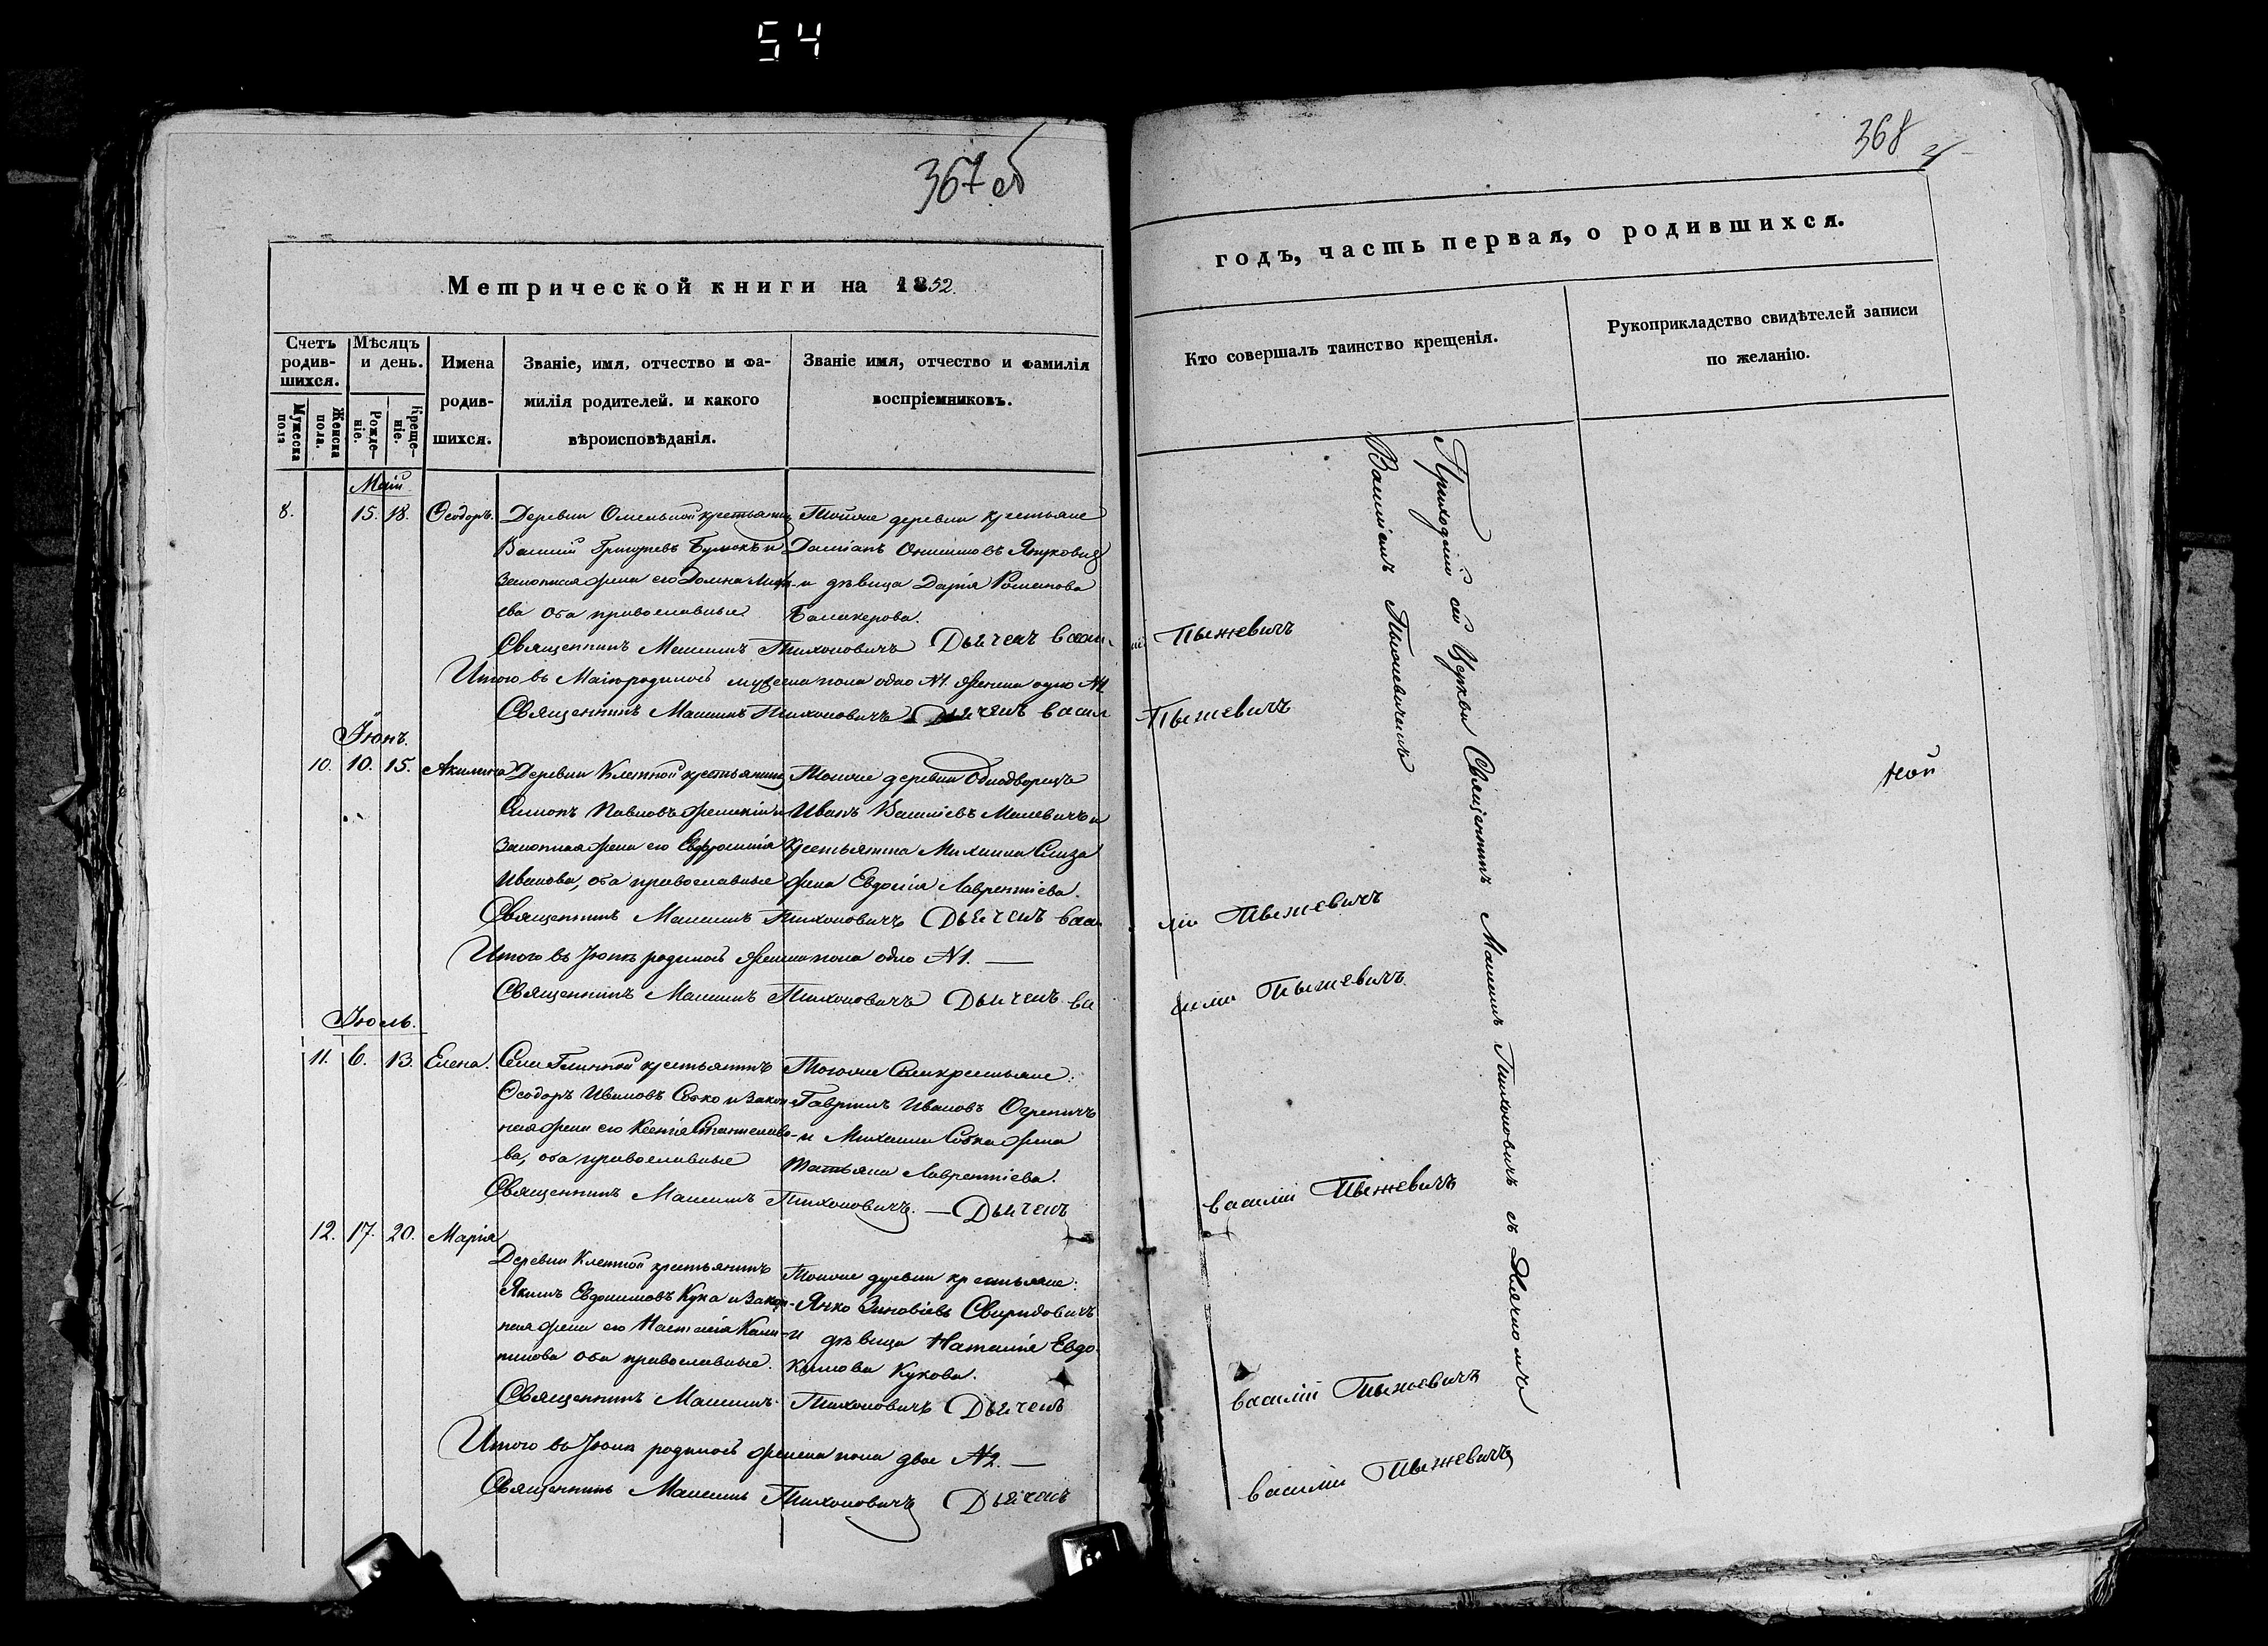 54
367 об
Метрической книги на 1852
Счетъ родив-шихся.
Мужеска пола
Женска пола.
Мѣсяцъ и день.
Рожде-ніе.
Креще-ніе.
Имена родив-шихся.
Званіе, имя, отчество и фа-
милія родителей. и какого
вѣроисповѣданія.
Званіе имя, отчество и фамилія
воспріемниковъ.
Маій
8. 15. 18. Ѳеодоръ.
Деревни крестьянинъ
Василій Григорьевъ и
законная жена его Домна
ева оба православные
Тойже деревни крестьяне
Даміанъ Онисимовъ Януковичъ
и дѣвица Дарія Романова
Священникъ Максимъ Тихоновичъ Дьячекъ васи
Итого въ Маіи родилось мужеска пола одно №1. женска одно №1
Священникъ Максимъ Тихоновичъ Дьячекъ васил
Іюнь.
10. 10. 15. Акилина
Деревни Клетной крестьянинъ
Симонъ Павловъ и
законная жена его Евфросинія
Иванова, оба православные
Тойже деревни Однодворецъ
Иванъ Василіевъ Малевичъ и
Крестьянина Михаила
жена Евдокія Лаврентіева.
Священникъ Максимъ Тихоновичъ Дьячекъ васи
Итого въ Іюнѣ родилось женска пола одно №1. —
Священникъ Максимъ Тихоновичъ Дьячекъ ва
Іюль.
11. 6. 13. Елена.
Села крестьянинъ
Ѳеодоръ Ивановъ Собко и закон-
ная жена его Ксенія Станиславо-
ва, оба православные
Тогоже Села крестьяне:
Гавріилъ Ивановъ
и Михаила Собка жена
Татьяна Лаврентіева.
Священникъ Максимъ Тихоновичъ. — Дьячекъ
12. 17. 20. Марія
Деревни Клетной крестьянинъ
Якимъ Евдокимовъ Кука и закон-
ная жена его Настасія
оба православные.
Тойже деревни крестьяне:
Янко Зиновіевъ Свиридовичъ
и дѣвица Наталія Евдо-
кимова Кукова.
Священникъ Максимъ Тихоновичъ Дьячекъ
Итого въ Іюлѣ родилось женска пола двое №2. —
Священникъ Максимъ Тихоновичъ Дьячекъ
368
годъ, часть первая, о родившихся.
Кто совершалъ таинство крещенія.
Рукоприкладство свидѣтелей записи
по желанію.
Приходскій сей Церкви Священникъ Максимъ Тихоновичъ съ Дьячкомъ
Василіемъ Пыжевичемъ
лій Пыжевичъ
Пыжевичъ
ной
лій Пыжевичъ
силій Пыжевичъ
василій Пыжевичъ
василій Пыжевичъ
василій Пыжевичъ